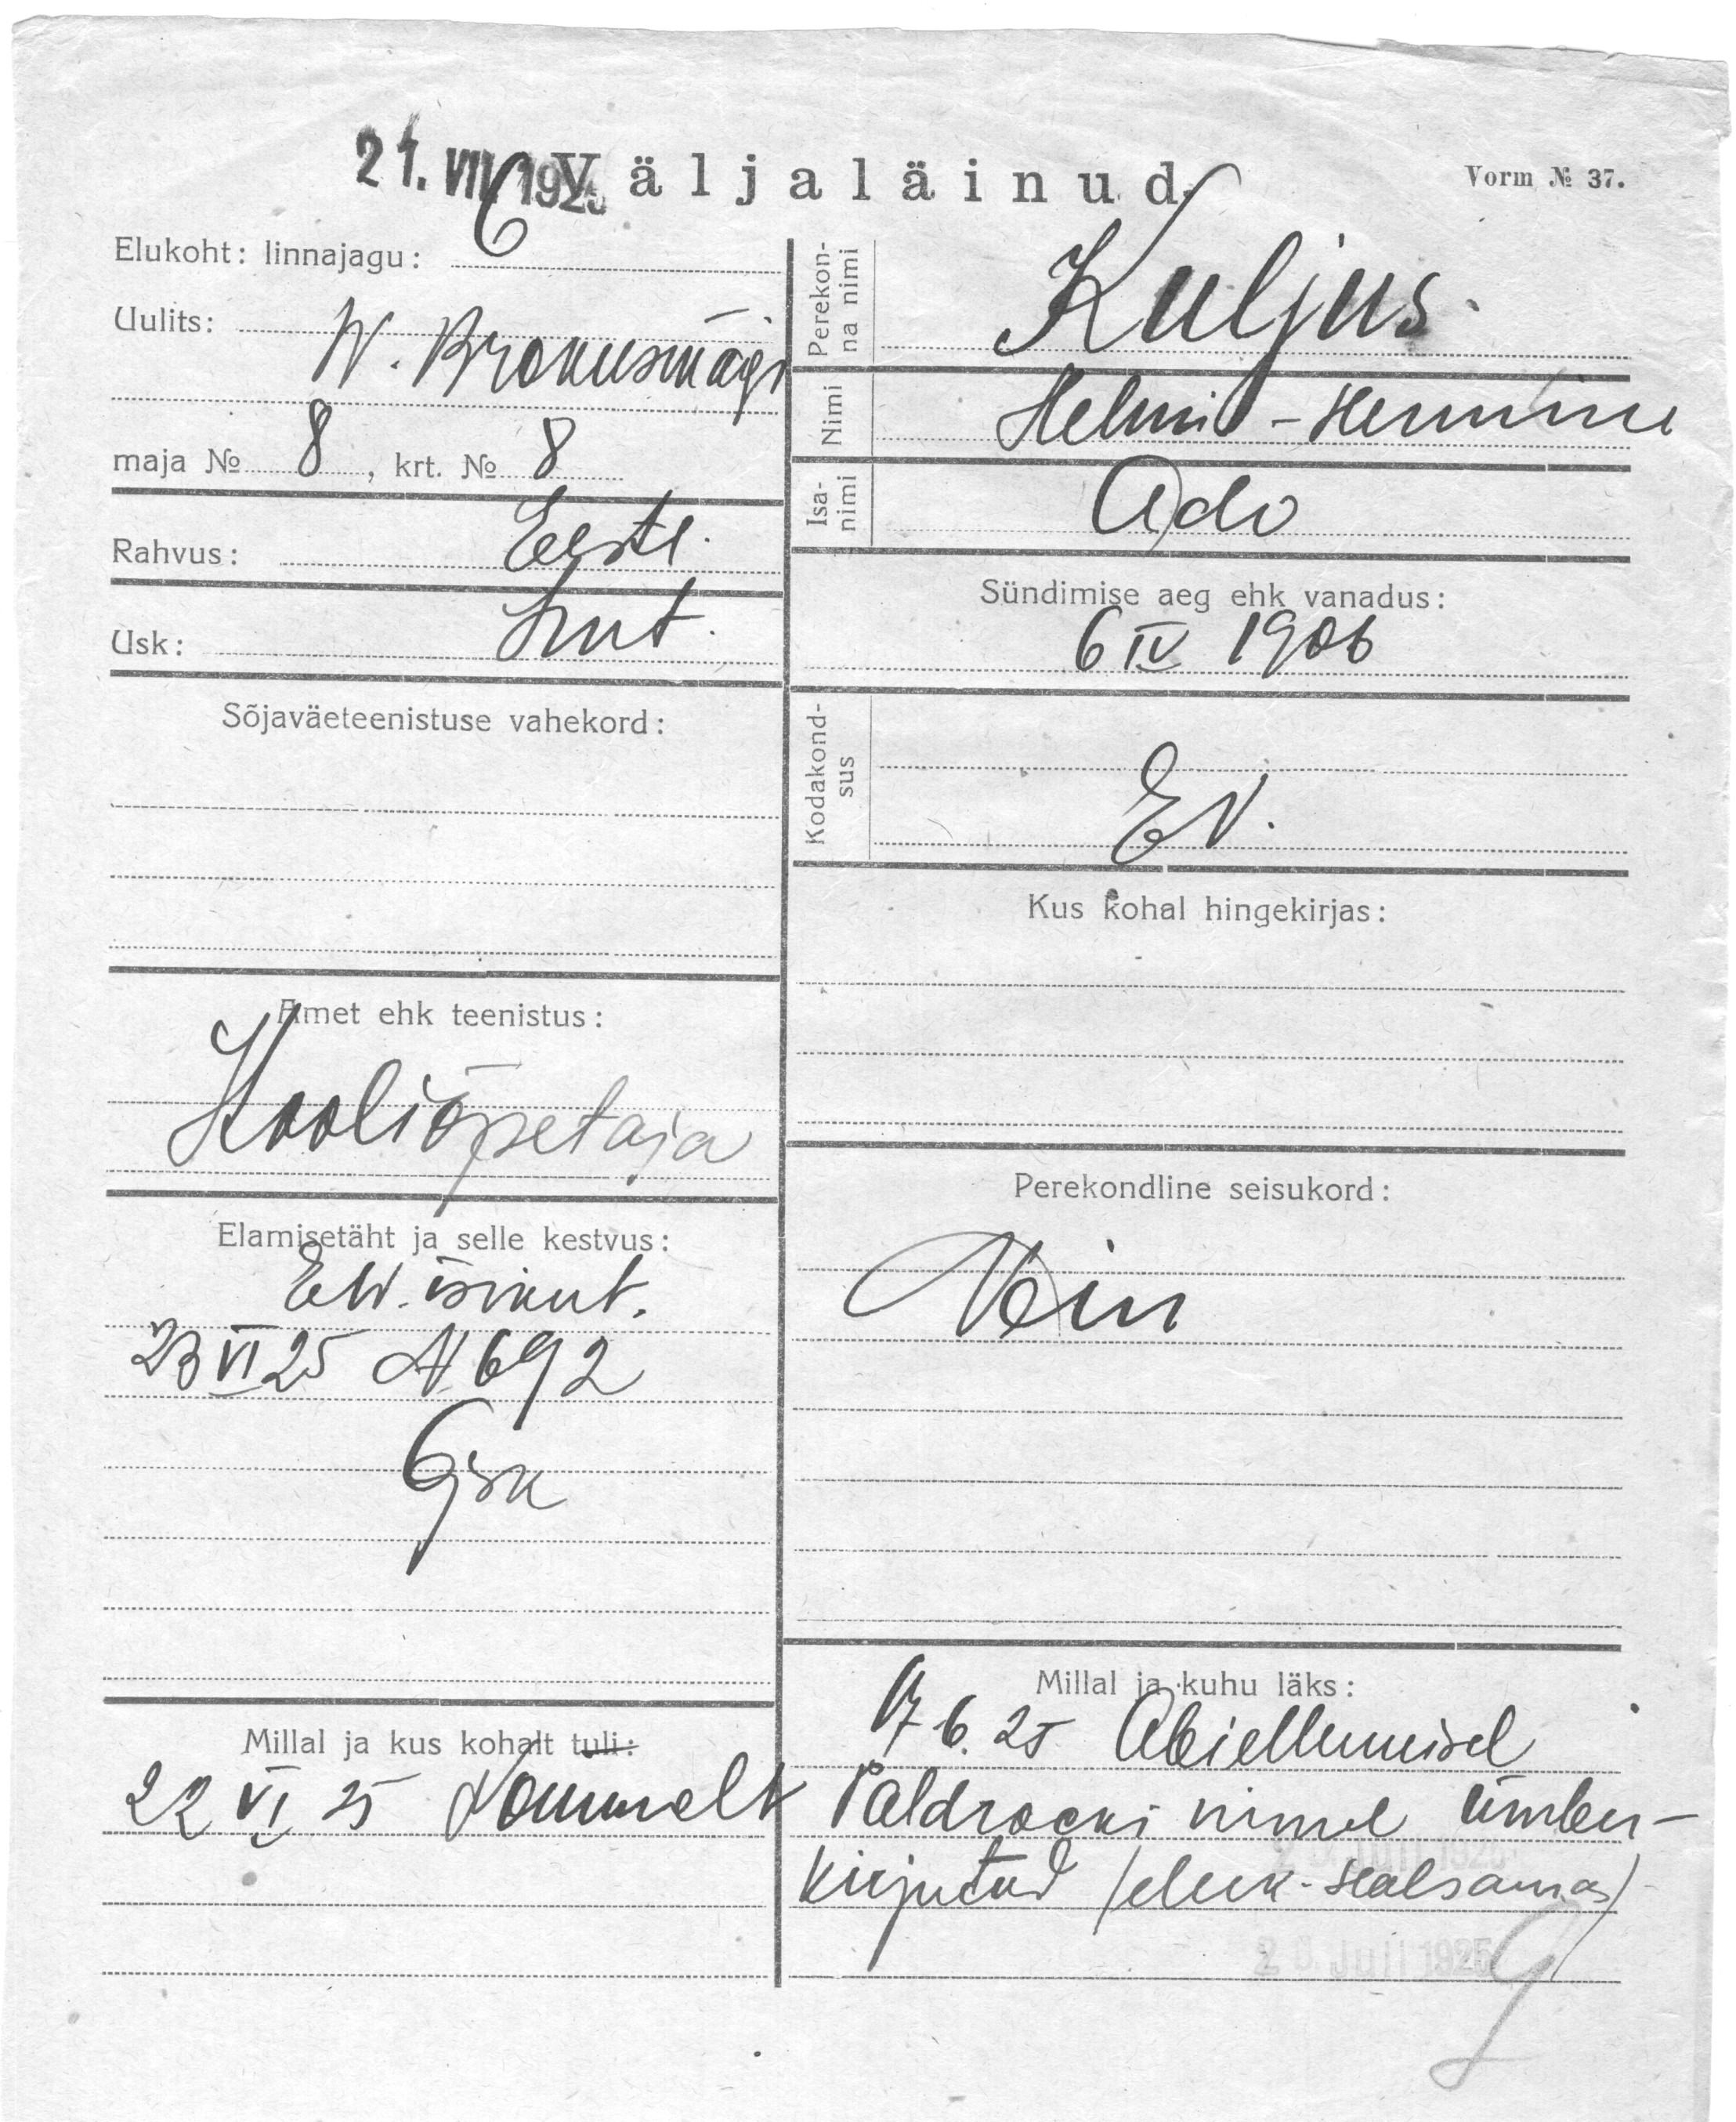 21. VII 1925
Väljaläinud
Vorm № 37.
Elukoht: linnajagu: 6
Uulits: W. Brokusmägi
maja № 8, krt. № 8
Rahvus: Eesti.
Usk: Lut.
Sõjaväeteenistuse vahekord:
Amet ehk teenistus:
Kooliõpetaja
Elamisetäht ja selle kestvus:
EW. isikut.
23 VI 25 N 692
6 jsk
Millal ja kus kohalt tuli:
22 VI 25 Nõmmelt
Perekonna nimi
Kuljus.
Nimi
Helmi-Hermine
Isanimi
Ado
Sündimise aeg ehk vanadus:
6 IV 1906
Kodakondsus
EV.
Kus kohal hingekirjas:
Perekondline seisukord:
Nein
Millal ja kuhu läks:
17 6. 25 Abiellumisel
Paldrocki nimel ümber-
kirjutud (eluk. sealsamas)
Juli 1925